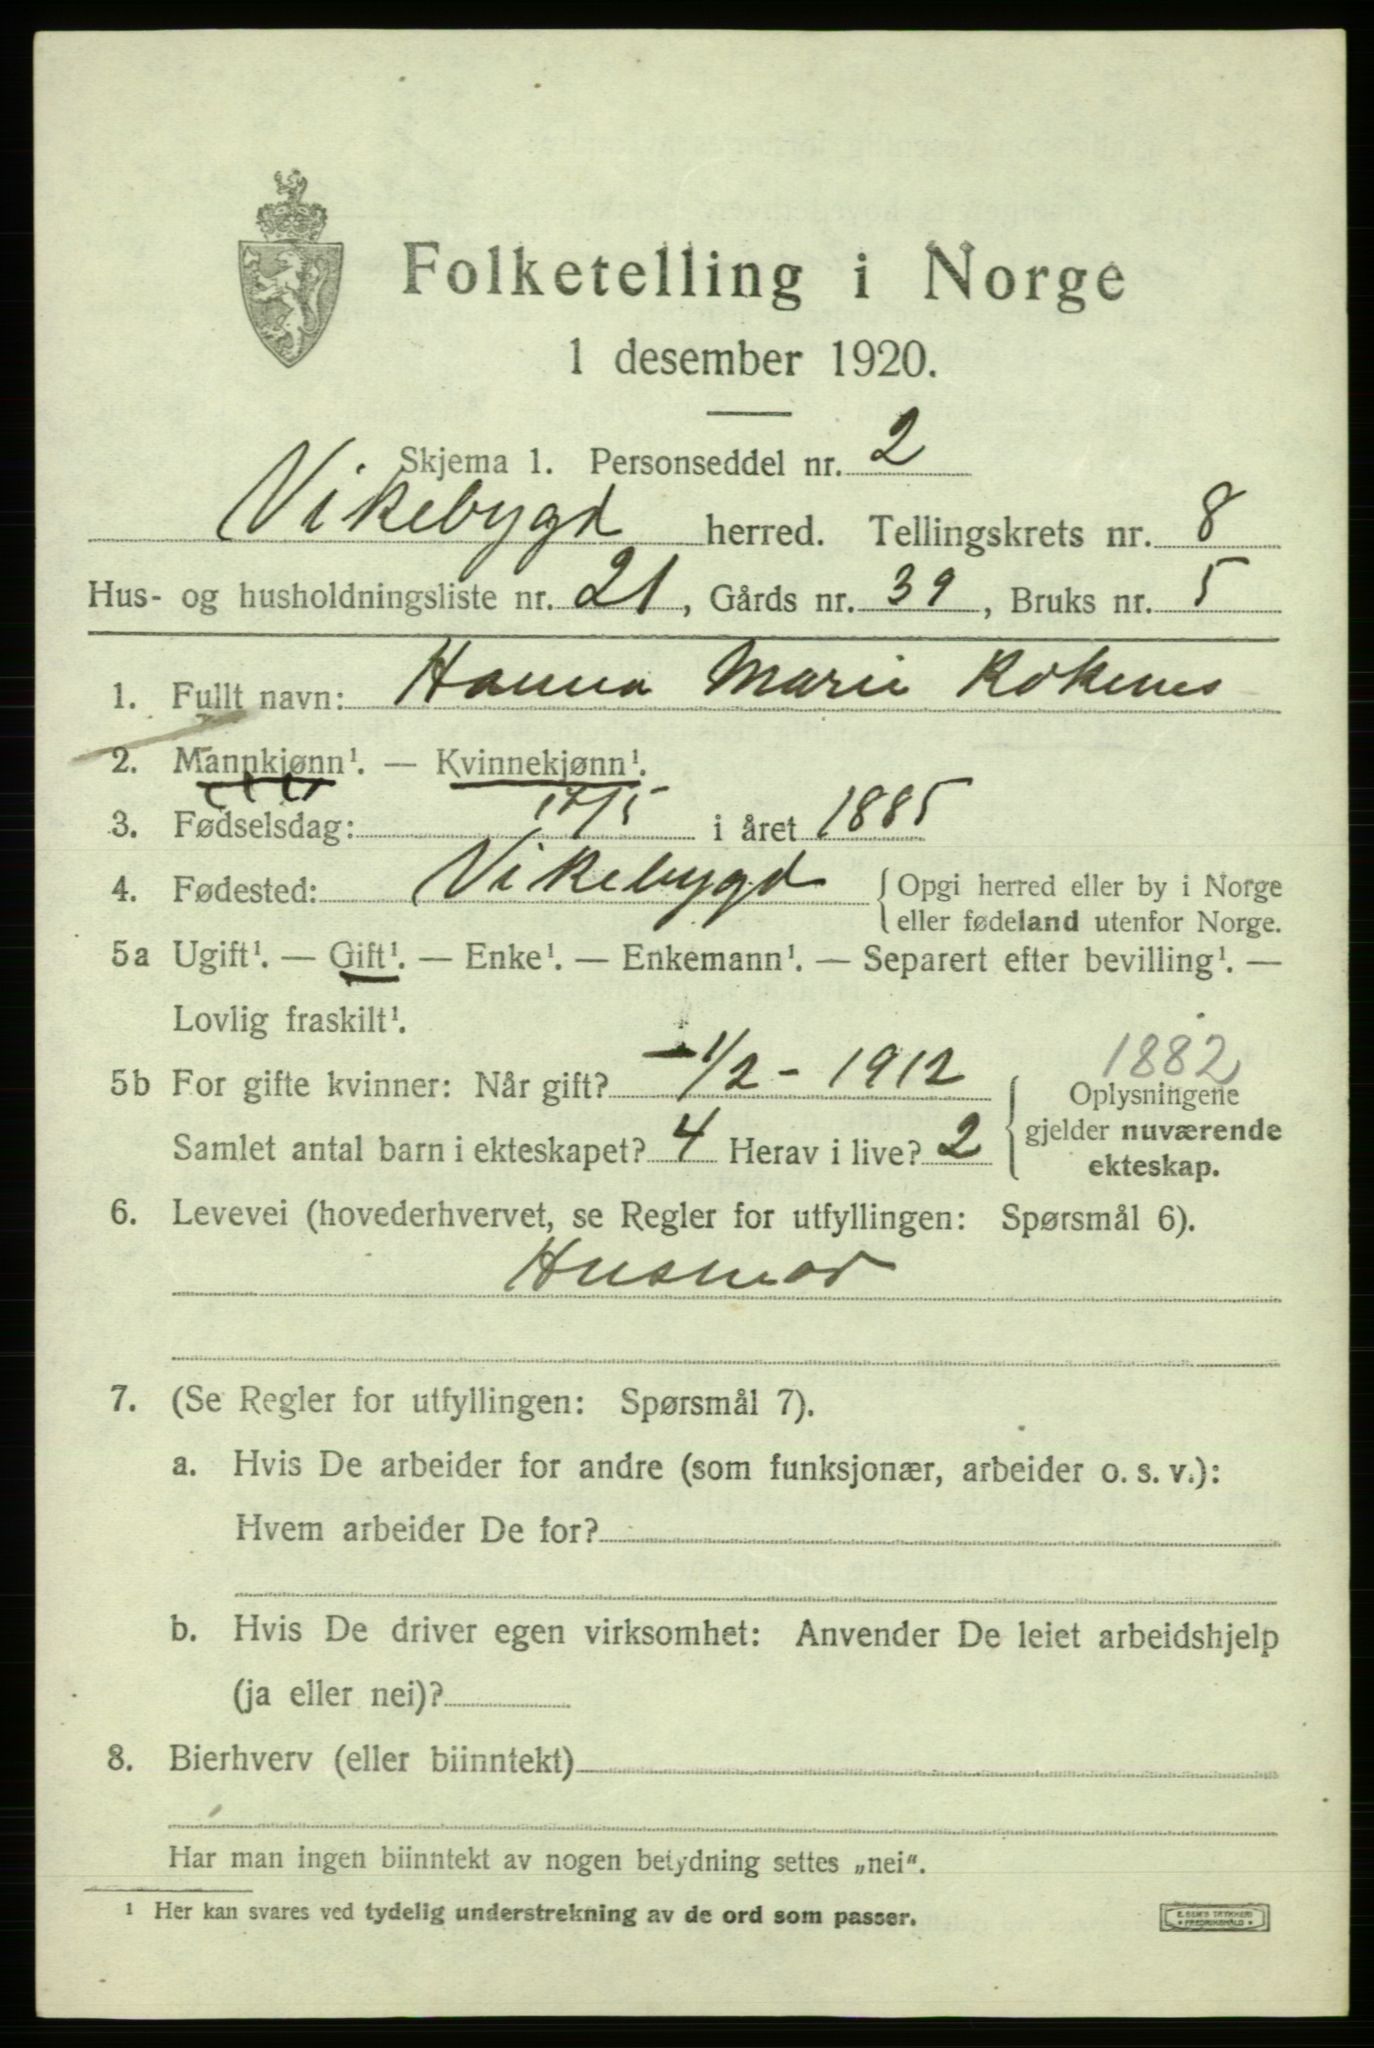 Folketelling i Norge
1 desember 1920.
Skjema 1. Personseddel nr. 2
Vikebygd herred. Tellingskrets nr. 8
Hus- og husholdningsliste nr. 21, Gårds nr. 39, Bruks nr. 5
1. Fullt navn: Hanna Marie Rokenes
2. Mannkjønn¹. — Kvinnekjønn¹.
3. Fødselsdag: 17/5 i året 1885
4. Fødested: Vikebygd { Opgi herred eller by i Norge
eller fødeland utenfor Norge.
5a Ugift¹. — Gift¹. — Enke¹. — Enkemann¹. — Separert efter bevilling¹. —
Lovlig fraskilt¹.
1882
5b For gifte kvinner: Når gift? 1/2 - 1912 { Oplysningene
gjelder nuværende
Samlet antal barn i ekteskapet? 4 Herav i live? 2
ekteskap.
6. Levevei (hovederhvervet, se Regler for utfyllingen: Spørsmål 6).
Husmor
7. (Se Regler for utfyllingen: Spørsmål 7).
a. Hvis De arbeider for andre (som funksjonær, arbeider o. s. v.):
Hvem arbeider De for?
b. Hvis De driver egen virksomhet: Anvender De leiet arbeidshjelp
(ja eller nei)?
8. Bierhverv (eller biinntekt)
Har man ingen biinntekt av nogen betydning settes „nei“.
¹ Her kan svares ved tydelig understrekning av de ord som passer.
E. SEM'S TRYKKERI
FREDRIKSHALD